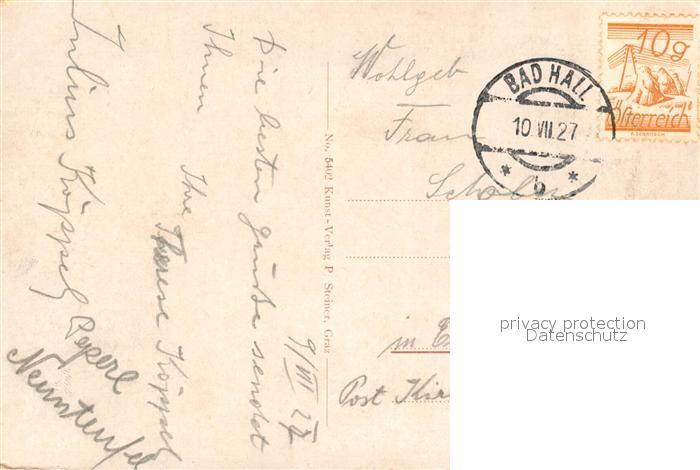 9/VII 27
Die besten Grüße sendet
Ihnen
Ihre
Therese Köppel
Julius Köppel
Peperl
Neunteufel
No. 5402 Kunst-Verlag P. Steiner, Graz
Wohlgeb
Frau
Schober
in
Post Kir
BAD HALL
10.VII.27
* b *
10g
Österreich
privacy protection
Datenschutz